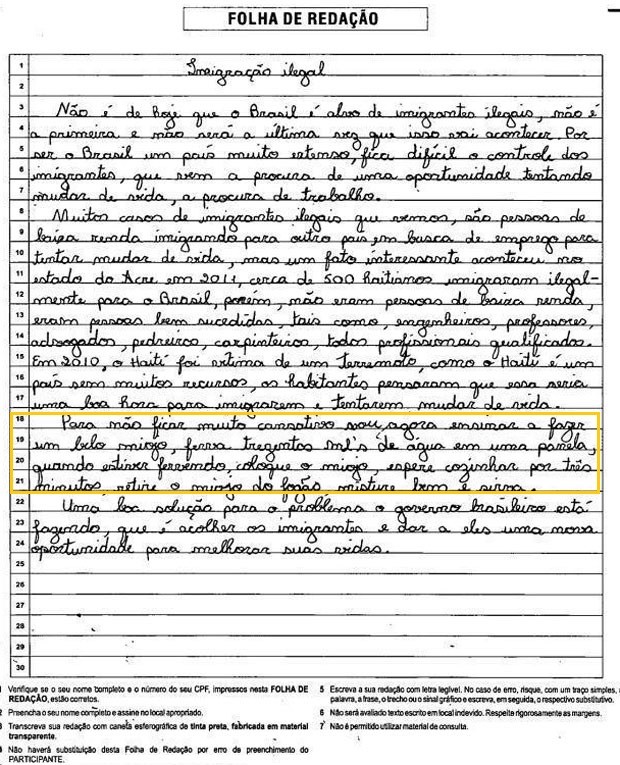 FOLHA DE REDAÇÃO
1 Imigração ilegal
2
3 Não é de hoje que o Brasil é alvo de imigrantes ilegais, não é
4 a primeira e não será a última vez que isso vai acontecer. Por
5 ser o Brasil um país muito extenso, fica difícil o controle dos
6 imigrantes, que vem a procura de uma oportunidade tentando
7 mudar de vida, a procura de trabalho.
8 Muitos casos de imigrantes ilegais que vemos, são pessoas de
9 baixa renda imigrando para outro país em busca de emprego para
10 tentar mudar de vida, mas um fato interessante aconteceu no
11 estado do Acre, em 2011, cerca de 500 haitianos imigraram ilegal-
12 mente para o Brasil, porém, não eram pessoas de baixa renda,
13 eram pessoas bem sucedidas, tais como, engenheiros, professores,
14 advogados, pedreiros, carpinteiros, todos profissionais qualificados.
15 Em 2010, o Haiti foi vítima de um terremoto, como o Haiti é um
16 país sem muitos recursos, os habitantes pensaram que essa seria
17 uma boa hora para imigrarem e tentarem mudar de vida.
18 Para não ficar muito cansativo, vou agora ensinar a fazer
19 um belo miojo, ferva trezentos ml's de água em uma panela,
20 quando estiver fervendo, coloque o miojo, espere cozinhar por três
21 minutos, retire o miojo do fogão, misture bem e sirva.
22 Uma boa solução para o problema o governo brasileiro está
23 fazendo, que é acolher os imigrantes e dar a eles uma nova
24 oportunidade para melhorar suas vidas.
25
26
27
28
29
30
1 Verifique se o seu nome completo e o número do seu CPF, impressos nesta FOLHA DE
REDAÇÃO, estão corretos.
2 Preencha o seu nome completo e assine no local apropriado.
3 Transcreva sua redação com caneta esferográfica de tinta preta, fabricada em material
transparente.
4 Não haverá substituição desta Folha de Redação por erro de preenchimento do
PARTICIPANTE.
5 Escreva a sua redação com letra legível. No caso de erro, risque, com um traço simples, a
palavra, a frase, o trecho ou o sinal gráfico e escreva, em seguida, o respectivo substitutivo.
6 Não será avaliado texto escrito em local indevido. Respeite rigorosamente as margens.
7 Não é permitido utilizar material de consulta.